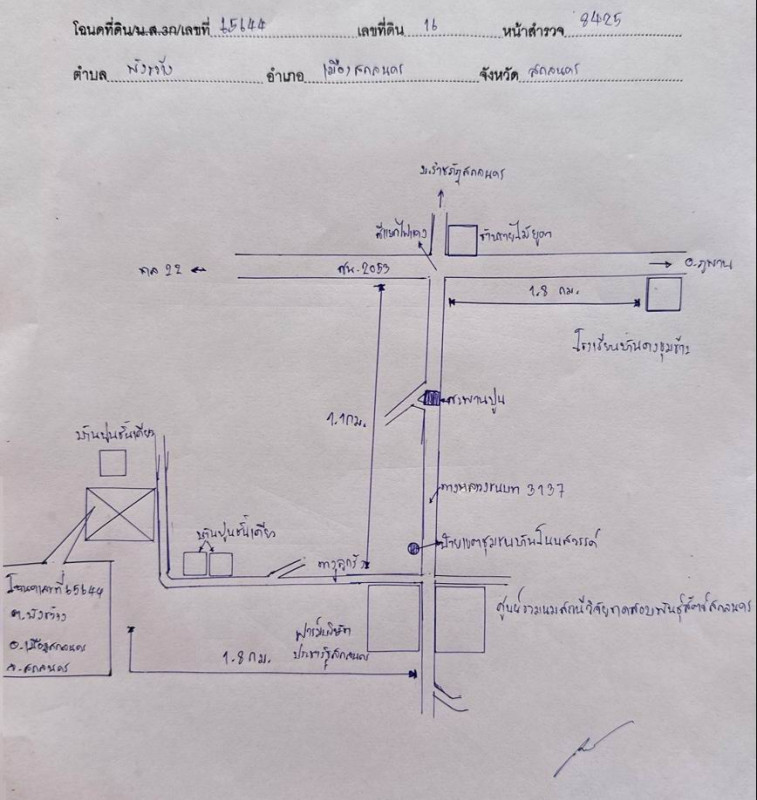 โฉนดที่ดิน/น.ส.3ก/เลขที่ 65644 เลขที่ดิน 16 หน้าสำรวจ 8425
ตำบล พังขว้าง อำเภอ เมืองสกลนคร จังหวัด สกลนคร
ม.ราชภัฏสกลนคร
สี่แยกไฟแดง
ทล 22
สน.2053
อ.ภูพาน
1.8 กม.
โรงเรียนบ้านดงขุมข้าว
สะพานปูน
1.1 กม.
บ้านปูนชั้นเดียว
ทางหลวงชนบท 3137
บ้านปูนชั้นเดียว
ป้ายเขตชุมชนบ้านโนนสวรรค์
ทางลูกรัง
โฉนดเลขที่ 65644
ต.พังขว้าง
อ.เมืองสกลนคร
จ.สกลนคร
ศูนย์รวมนมสถานีวิจัยทดสอบพันธุ์สัตว์สกลนคร
ฟาร์มบริษัท
ประชารัฐสกลนคร
1.8 กม.